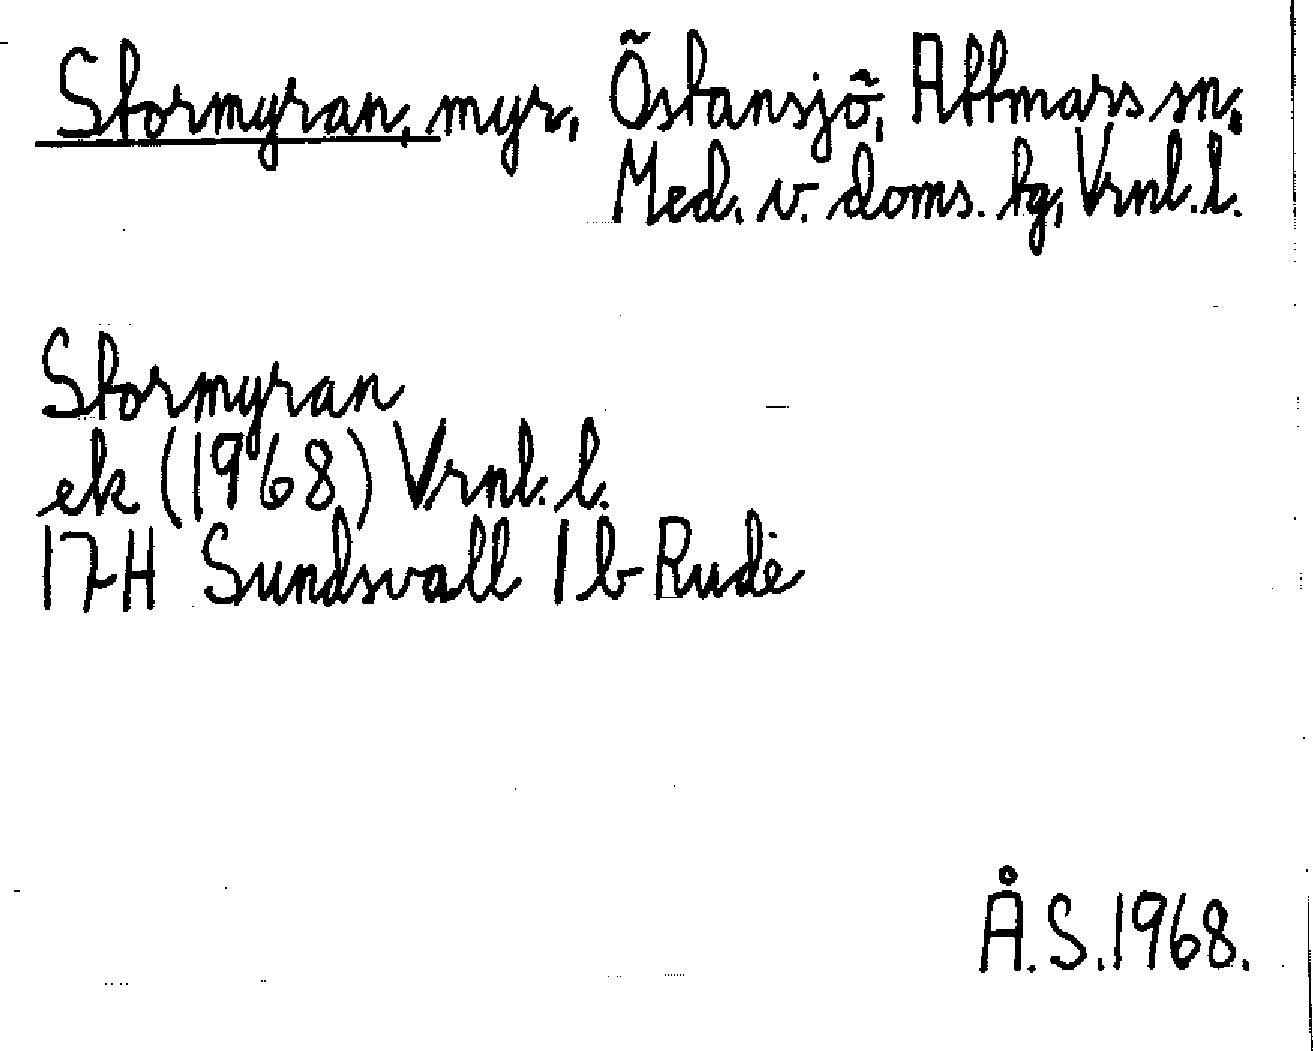 Stormyran, myr, Östansjö, Attmars sn,
Med. v. doms. tg, Vrnl. l.
Stormyran
ek (1968) Vrnl. l.
17H Sundsvall 1 b Rude
Å.S.1968.